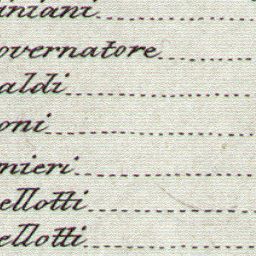 iniani
overnatore
aldi
oni
nieri
ellotti
ellotti